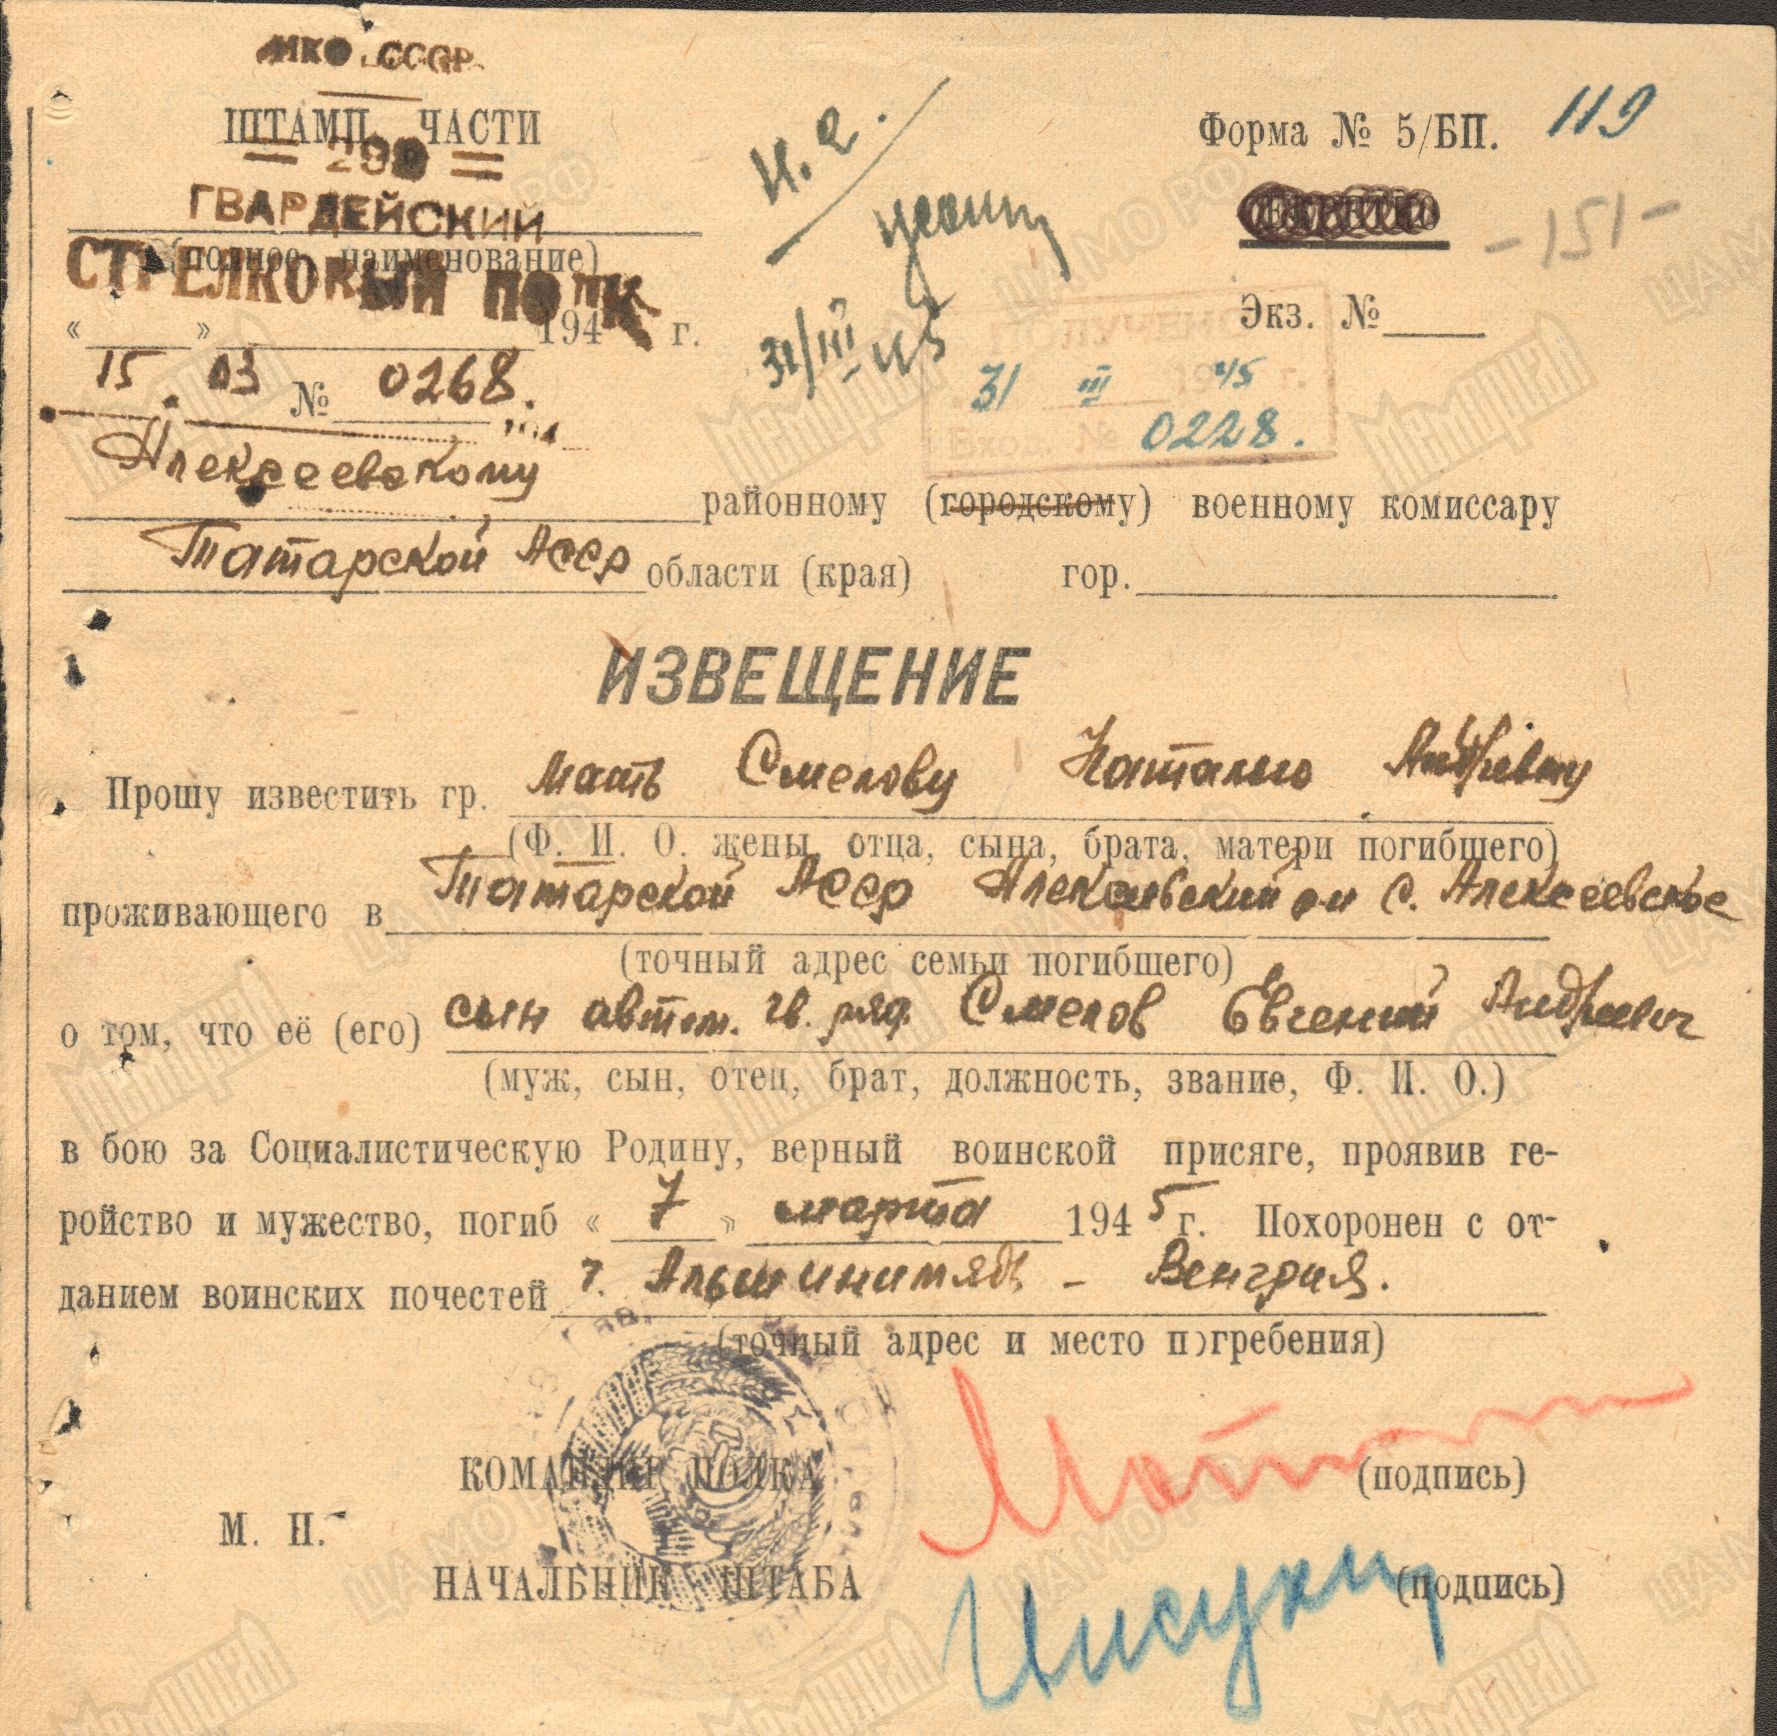 НКО СССР
ШТАМП ЧАСТИ
Форма № 5/БП.
119
ГВАРДЕЙСКИЙ
(полное наименование)
СТРЕЛКОВЫЙ ПОЛК
-151-
« » 194 г.
Экз. №
31/III-45
ПОЛУЧЕНО
31 III 1945 г.
Вход. № 0228.
15. 03 № 0268.
Алексеевскому районному (городскому) военному комиссару
Татарской АССР области (края) гор.
ИЗВЕЩЕНИЕ
Прошу известить гр. мать Смелову Наталью
(Ф. И. О. жены, отца, сына, брата, матери погибшего)
проживающего в Татарской АССР Алексеевский с. Алексеевское
(точный адрес семьи погибшего)
о том, что её (его) сын автом. гв. ряд. Смелов Евгений Андреевич
(муж, сын, отец, брат, должность, звание, Ф. И. О.)
в бою за Социалистическую Родину, верный воинской присяге, проявив ге-
ройство и мужество, погиб « 7 » марта 1945 г. Похоронен с от-
данием воинских почестей г. – Венгрия.
(точный адрес и место погребения)
КОМАНДИР ПОЛКА
(подпись)
М. П.
НАЧАЛЬНИК ШТАБА
(подпись)